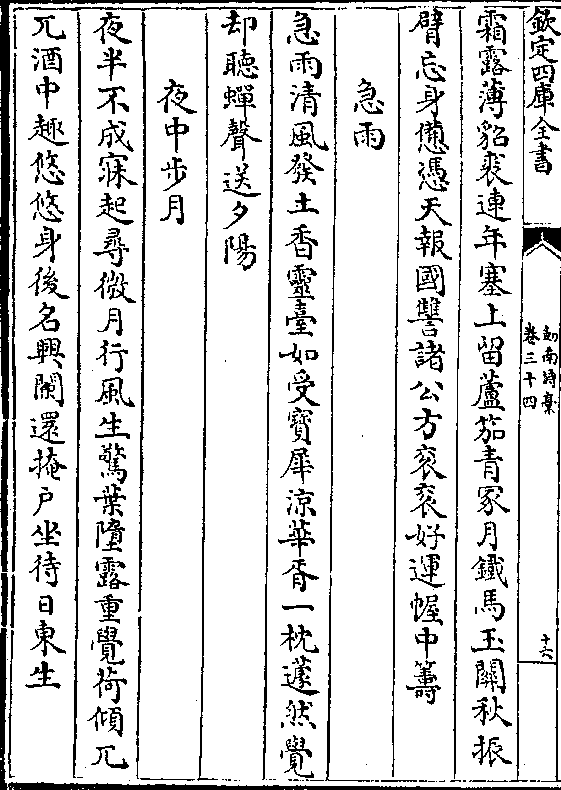 欽定四庫全書
劒南詩藁
卷三十四
十六
霜露薄貂裘連年塞上留蘆笳青冢月鐵馬玉關秋振
臂忘身憊憑天報國讐諸公方衮衮好運幄中籌
急雨
急雨清風發土香靈臺如受寳犀涼華胥一枕蘧然覺
却聽蟬聲送夕陽
夜中步月
夜半不成寐起尋微月行風生驚葉墮露重覺荷傾兀
兀酒中趣悠悠身後名興闌還掩戸坐待日東生